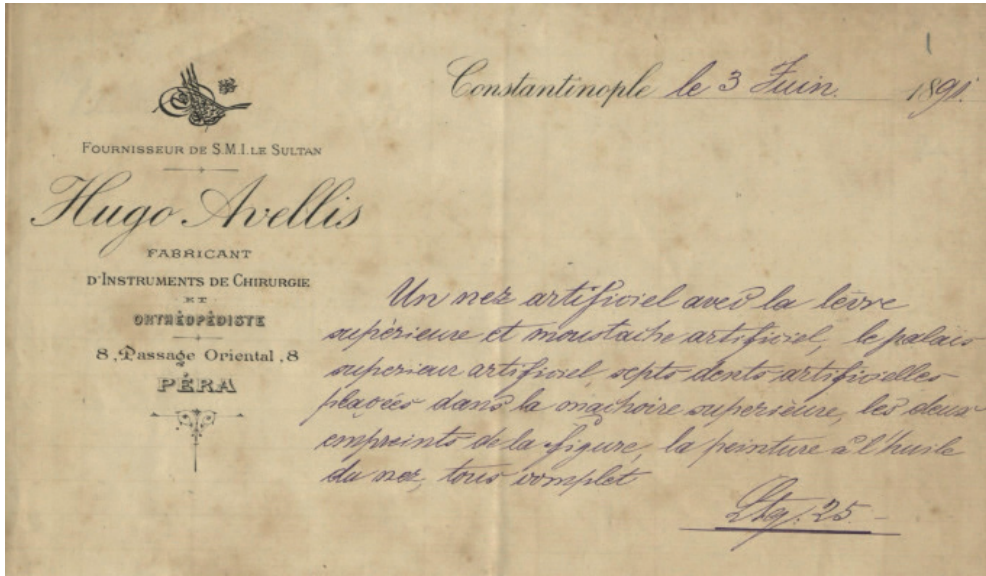 Constantinople le 3 Juin. 1891.
FOURNISSEUR DE S.M.I. LE SULTAN
Hugo Avellis
FABRICANT
D'INSTRUMENTS DE CHIRURGIE
ET
ORTHÉOPÉDISTE
8, Passage Oriental, 8
PÉRA
Un nez artificiel avec la lèvre
supèrieure et moustache artificiel, le palais
superieur artificiel, septs dents artificielles
placées dans la machoire superieure, les deux
empreints de la figure, la peinture à l'huile
du nez, tous complet
Ltq. 25.-